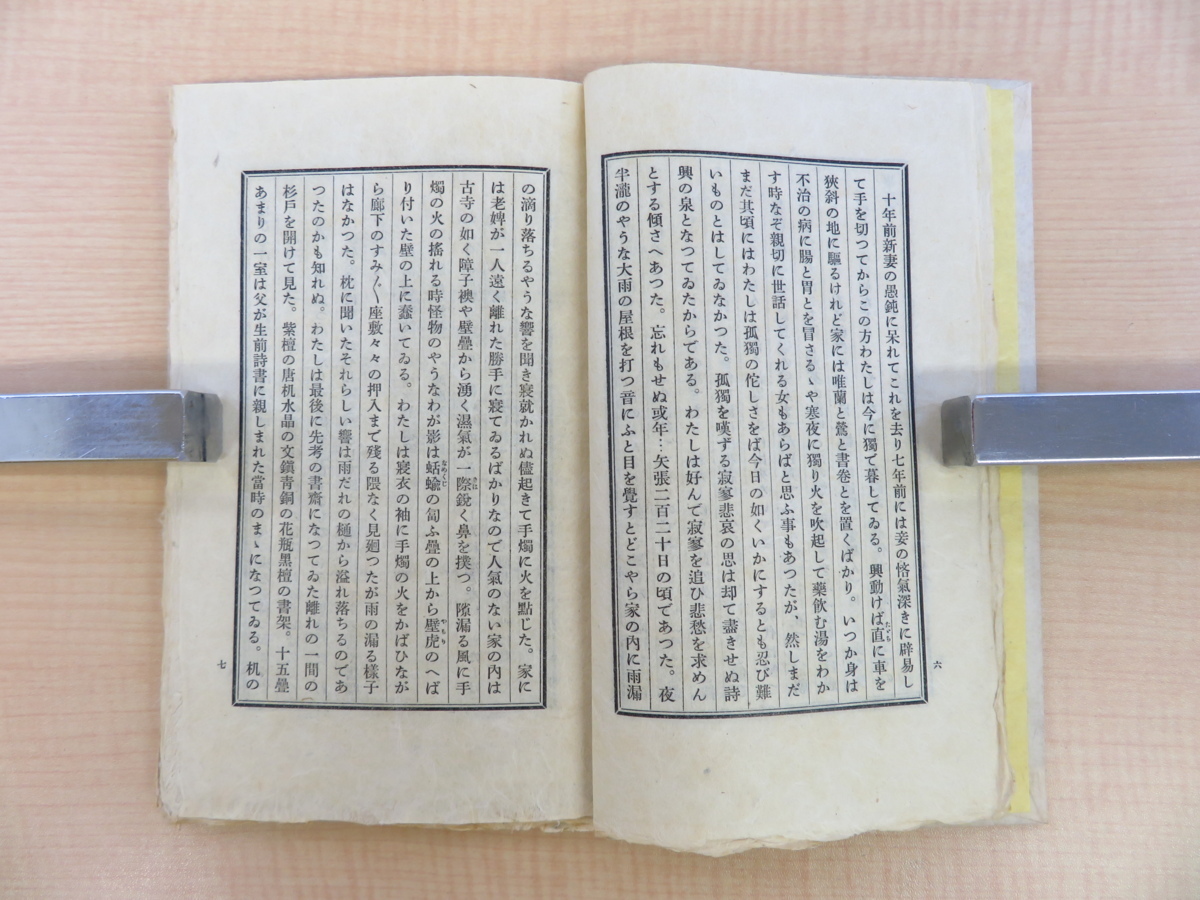 十年前新妻の愚鈍に呆れてこれを去り七年前には妾の悋氣深きに辟易し
て手を切つてからこの方わたしは今に獨で暮してゐる。興動けば直に車を
狹斜の地に驅るけれど家には唯蘭と鶯と書卷とを置くばかり。いつか身は
不治の病に腸と胃とを冒さるゝや寒夜に獨り火を吹起して藥飮む湯をわか
す時なぞ親切に世話してくれる女もあらばと思ふ事もあつたが、然しまだ
まだ其頃にはわたしは孤獨の佗しさをば今日の如くいかにするとも忍び難
いものとはしてゐなかつた。孤獨を嘆ずる寂寥悲哀の思は却て盡きせぬ詩
興の泉となつてゐたからである。わたしは好んで寂寥を追ひ悲愁を求めん
とする傾さへあつた。忘れもせぬ或年…矢張二百二十日の頃であつた。夜
半瀧のやうな大雨の屋根を打つ音にふと目を覺すとどこやら家の内に雨漏
六
の滴り落ちるやうな響を聞き寢就かれぬ儘起きて手燭に火を點じた。家に
は老婢が一人遠く離れた勝手に寢てゐるばかりなので人氣のない家の内は
古寺の如く障子襖や壁疊から湧く濕氣が一際銳く鼻を撲つ。隙漏る風に手
燭の火の搖れる時怪物のやうなわが影は蛞蝓の匐ふ疊の上から壁虎のへば
り付いた壁の上に蠢いてゐる。わたしは寢衣の袖に手燭の火をかばひなが
ら廊下のすみ〴〵座敷々々の押入まで殘る隈なく見廻つたが雨の漏る樣子
はなかつた。枕に聞いたそれらしい響は雨だれの樋から溢れ落ちるのであ
つたのかも知れぬ。わたしは最後に先考の書齋になつてゐた離れの一間の
杉戶を開けて見た。紫檀の唐机水晶の文鎭靑銅の花瓶黑檀の書架。十五疊
あまりの一室は父が生前詩書に親しまれた當時のまゝになつてゐる。机の
七